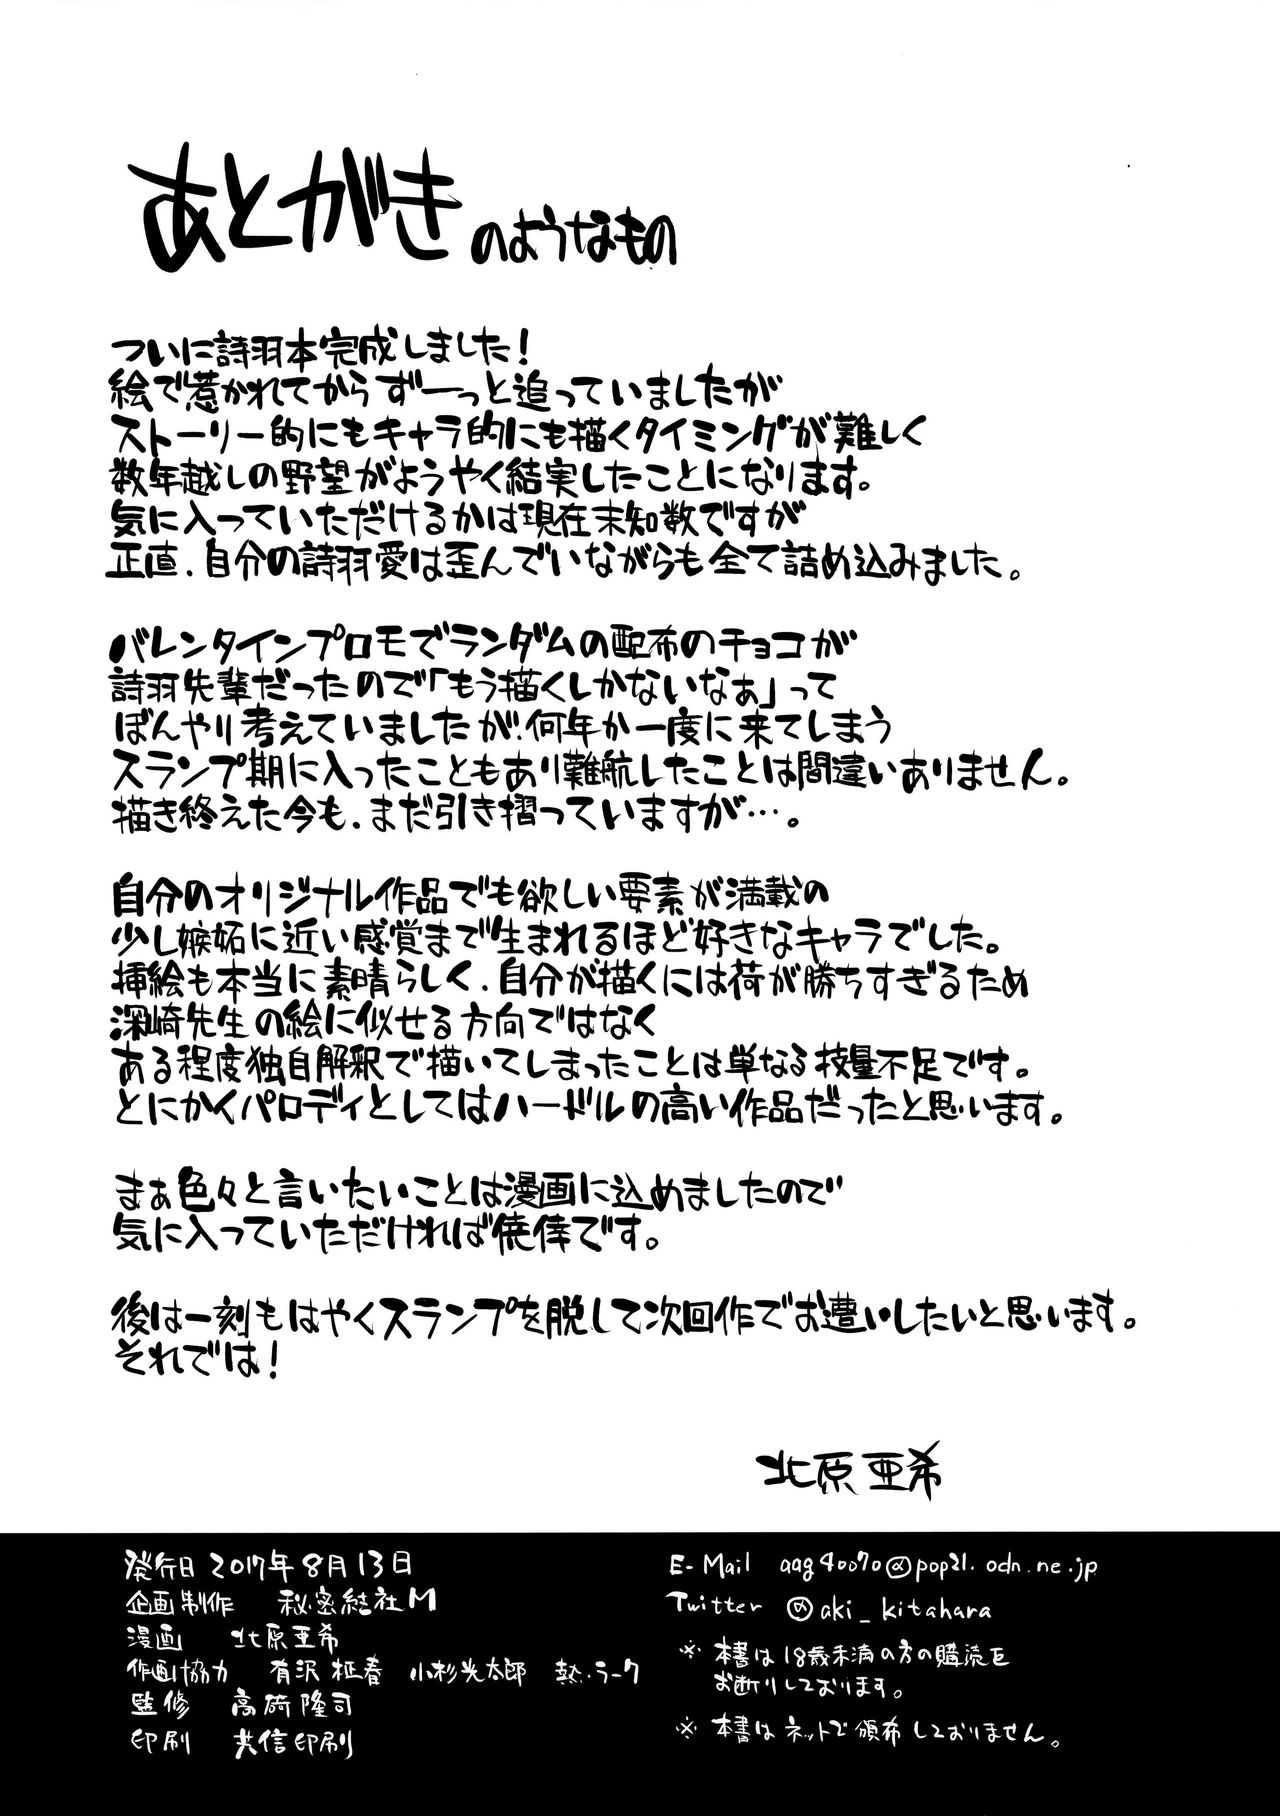 あとがきのようなもの
ついに詩羽本完成しました!
絵で惹かれてからずーっと追っていましたが
ストーリー的にもキャラ的にも描くタイミングが難しく
数年越しの野望がようやく結実したことになります。
気に入っていただけるかは現在未知数ですが
正直、自分の詩羽愛は歪んでいながらも全て詰め込みました。
バレンタインプロモでランダムの配布のチョコが
詩羽先輩だったので「もう描くしかないなぁ」って
ぼんやり考えていましたが、何年か一度に来てしまう
スランプ期に入ったこともあり難航したことは間違いありません。
描き終えた今も、まだ引き摺っていますが…。
自分のオリジナル作品でも欲しい要素が満載の
少し嫉妬に近い感覚まで生まれるほど好きなキャラでした。
挿絵も本当に素晴らしく、自分が描くには荷が勝ちすぎるため
深崎先生の絵に似せる方向ではなく
ある程度独自解釈で描いてしまったことは単なる技量不足です。
とにかくパロディとしてはハードルの高い作品だったと思います。
まぁ色々と言いたいことは漫画に込めましたので
気に入っていただければ僥倖です。
後は一刻もはやくスランプを脱して次回作でお遭いしたいと思います。
それでは!
北原亜希
発行日 2017年8月13日
企画制作 秘密結社M
漫画 北原亜希
作画協力 有沢 柾春 小杉光太郎 熱・ラーク
監修 高碕隆司
印刷 共信印刷
E-Mail aag40070@pop21.odn.ne.jp
Twitter @aki_kitahara
※ 本書は18歳未満の方の購読を
お断りしております。
※ 本書はネットで頒布しておりません。